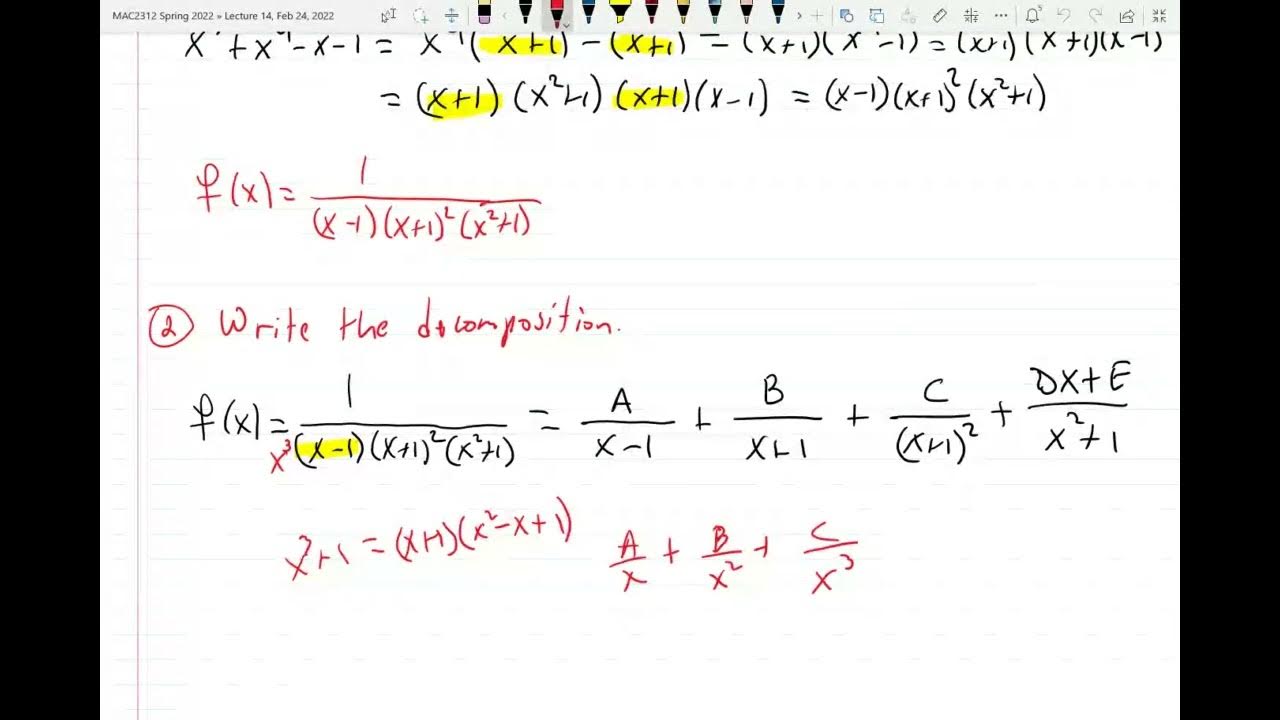 MAC2312 Spring 2022 » Lecture 14, Feb 24, 2022
x⁵ + x⁴ - x - 1 = x⁴(x+1) - (x+1) = (x+1)(x⁴-1) = (x+1)(x²+1)(x²-1)
= (x+1)(x²+1)(x+1)(x-1) = (x-1)(x+1)²(x²+1)
f(x) = 1 / (x-1)(x+1)²(x²+1)
② Write the decomposition.
f(x) = 1 / x³(x-1)(x+1)²(x²+1) = A/(x-1) + B/(x+1) + C/(x+1)² + (Dx+E)/(x²+1)
x³+1 = (x+1)(x²-x+1) A/x + B/x² + C/x³